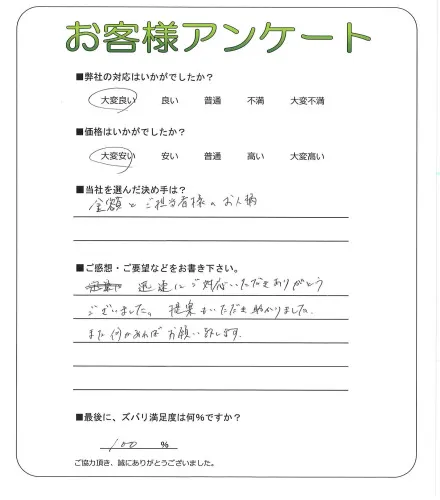 お客様アンケート
■弊社の対応はいかがでしたか？
大変良い 良い 普通 不満 大変不満
■価格はいかがでしたか？
大変安い 安い 普通 高い 大変高い
■当社を選んだ決め手は？
金額とご担当者様のお人柄
■ご感想・ご要望などをお書き下さい。
迅速にご対応いただきありがとう
ございました。提案もいただき助かりました。
また何かあればお願い致します。
■最後に、ズバリ満足度は何％ですか？
100 ％
ご協力頂き、誠にありがとうございました。